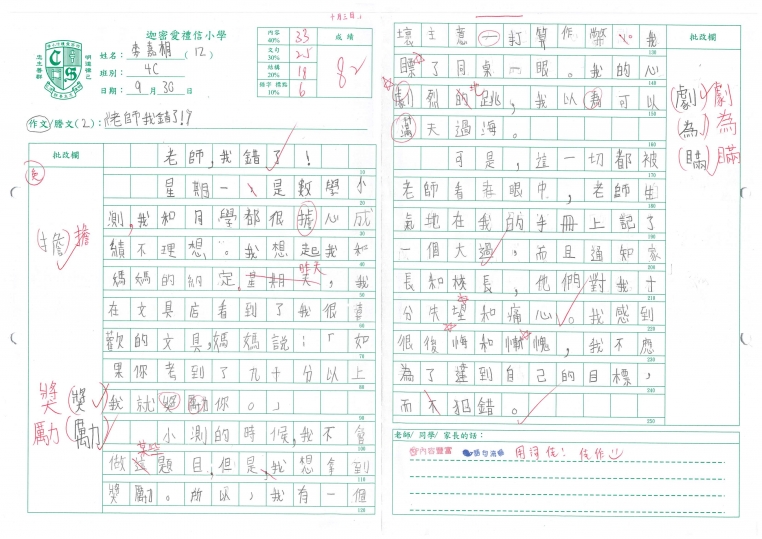 十月三日
迦密愛禮信小學
明道律己
忠主善群
姓名：麥嘉桐（12）
班別：4C
日期：9月30日
內容 40% 33
文句 30% 25
結構 20% 18
錯字 標點 10% 6
成績
82
作文/謄文(2)：《老師我錯了!》
批改欄
老師，我錯了！
星期一、是數學小
測，我和同學都很擔心成
擔 擔
績不理想。我想起我和
昨天
媽媽的約定。星期天，我
在文具店看到了我很喜
歡的文具，媽媽說：「如
果你考到了九十分以上
獎 獎
我就獎勵你。」
勵 勵
小測的時候，我不會
某些
做這題目，但是、我想拿到
獎勵。所以，我有一個
批改欄
壞主意一打算作弊。我
瞟了同桌一眼。我的心
劇烈的跳，我以為可以
地
劇 劇
瞞天過海。
為 為
瞞 瞞
可是，這一切都被
老師看在眼中，老師生
氣地在我的手冊上記了
一個大過，而且通知家
長和校長，他們對我十
分失望和痛心。我感到
很後悔和慚愧，我不應
為了達到自己的目標，
而不犯錯。
老師/同學/家長的話：
內容豐富 語句流暢 用詞佳！佳作